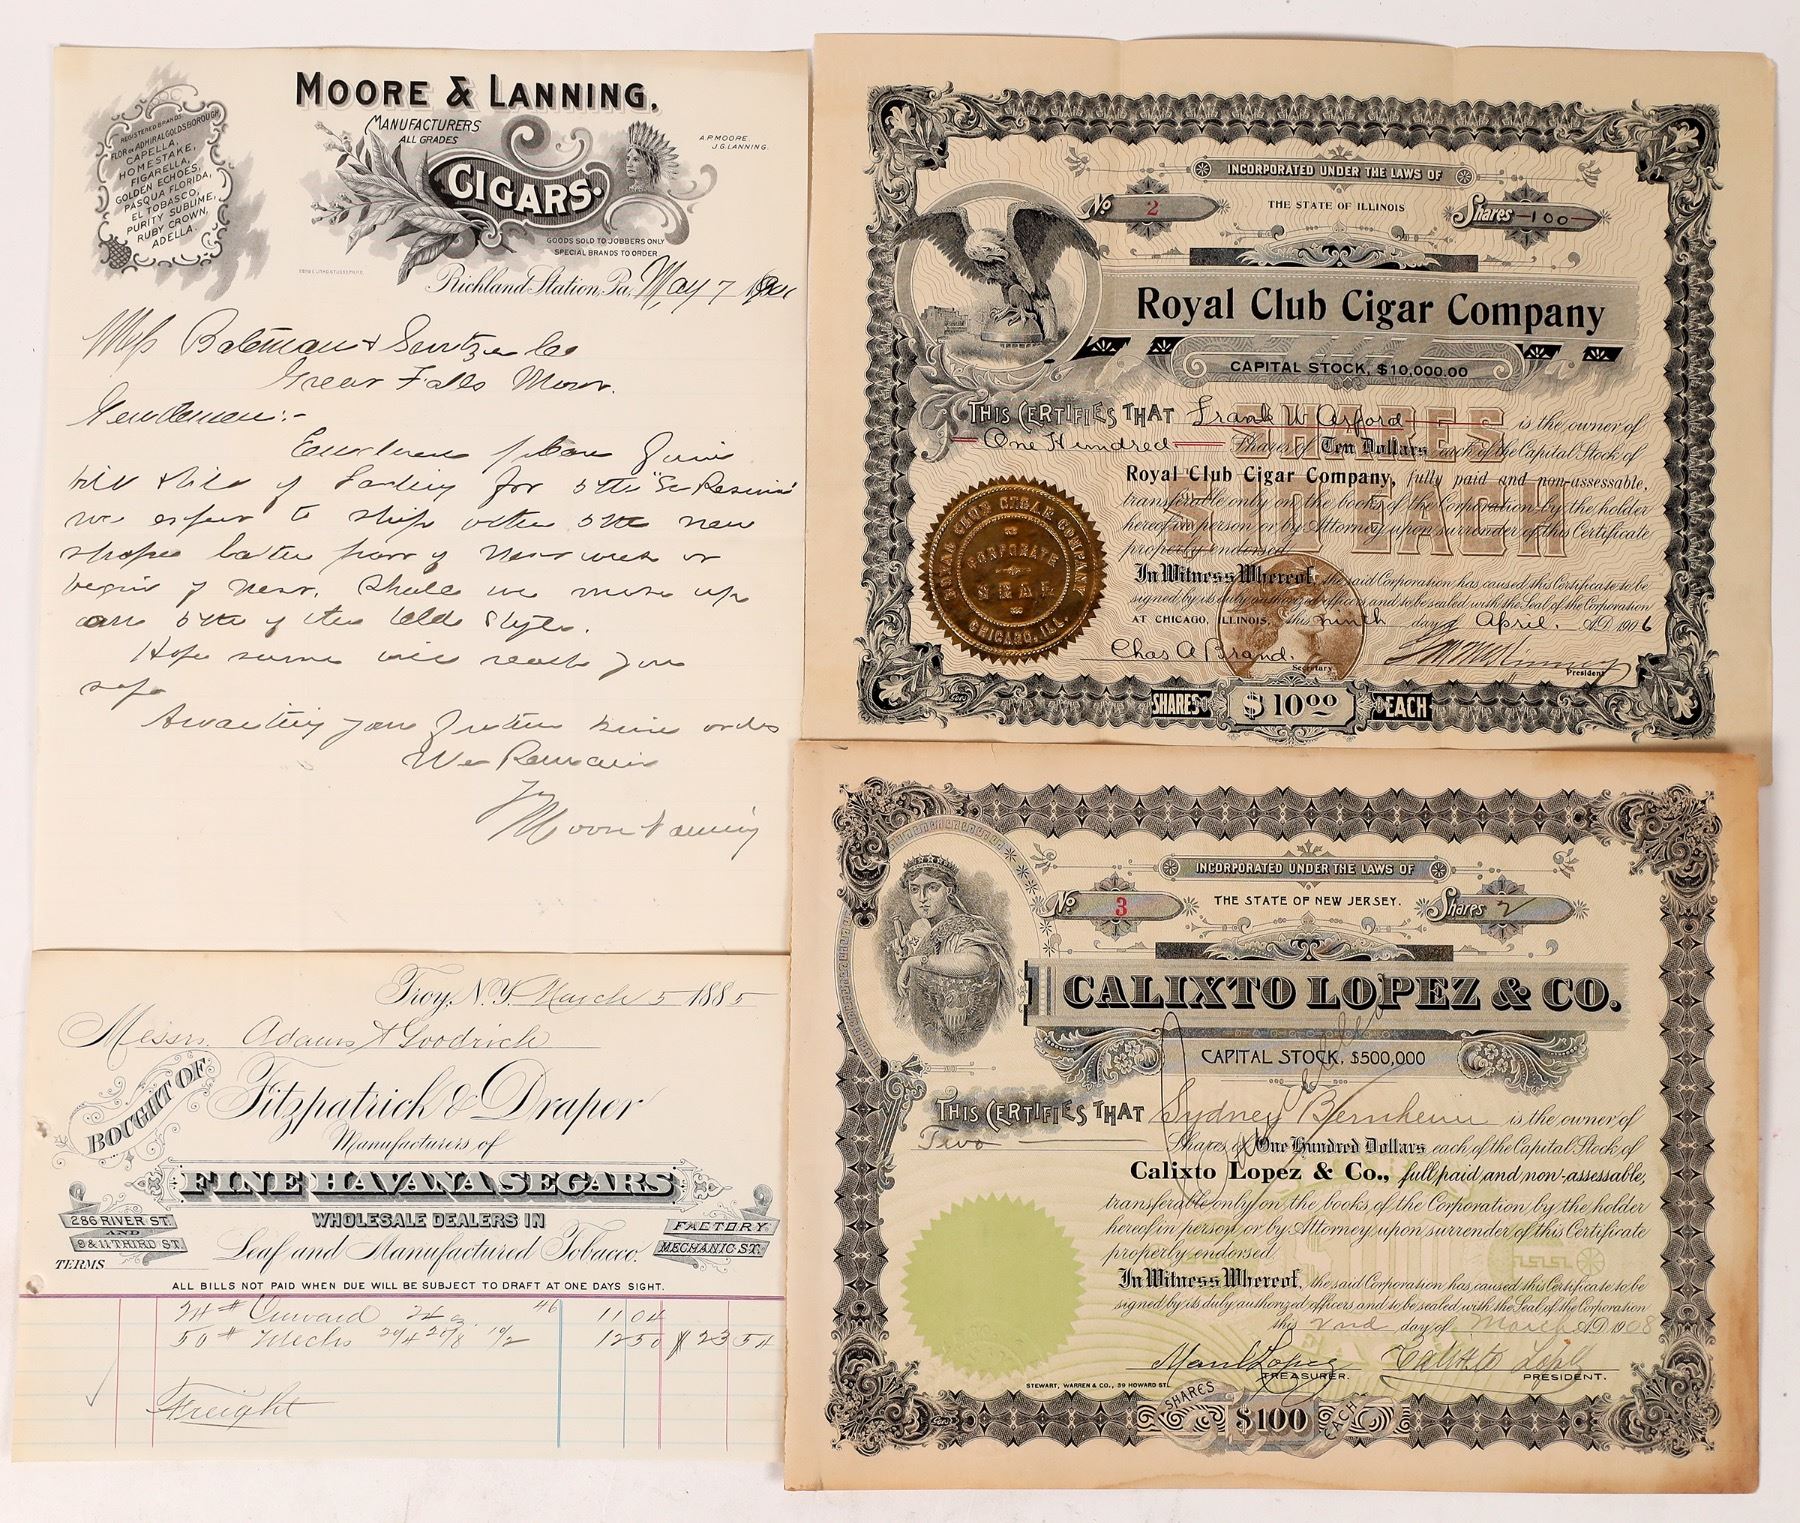 MOORE & LANNING.
MANUFACTURERS
ALL GRADES
CIGARS.
A.P. MOORE.
J.G. LANNING.
REGISTERED BRANDS
FLOR DE ADMIRAL GOLDSBOROUGH
CAPELLA,
HOMESTAKE,
FIGARELLA,
GOLDEN ECHOES,
PASQUA FLORIDA,
EL TOBASCO,
PURITY SUBLIME,
RUBY CROWN,
ADELLA.
GOODS SOLD TO JOBBERS ONLY
SPECIAL BRANDS TO ORDER
Richland Station, Pa. May 7
Bateman & Co
Great Falls Mon.
Gentlemen:-
please
bill of Lading for
we expect to ship other new
shapes of or
of Shall we make up
of the Old Style.
Hope same will reach you
safe
Awaiting your further orders
We Remain
Moore & Lanning
Troy, N.Y. March 5 1885
Messrs. Adams & Goodrich
BOUGHT OF
Fitzpatrick & Draper
Manufacturers of
FINE HAVANA SEGARS
WHOLESALE DEALERS IN
286 RIVER ST.
AND
9 & 11 THIRD ST.
FACTORY
MECHANIC ST.
Leaf and Manufactured Tobacco.
TERMS
ALL BILLS NOT PAID WHEN DUE WILL BE SUBJECT TO DRAFT AT ONE DAYS SIGHT.
24 # 46 11 04
50 # 12 50 $ 23 54
Freight
INCORPORATED UNDER THE LAWS OF
No 2
THE STATE OF ILLINOIS
Shares 100
Royal Club Cigar Company
CAPITAL STOCK, $10,000.00
THIS CERTIFIES THAT Frank W Arford is the owner of
One Hundred Shares of Ten Dollars each of the Capital Stock of
Royal Club Cigar Company, fully paid and non-assessable,
transferable only on the books of the Corporation by the holder
hereof in person or by Attorney upon surrender of this Certificate
properly endorsed.
SHARES
$10 EACH
In Witness Whereof, the said Corporation has caused this Certificate to be
signed by its duly authorized officers and to be sealed with the Seal of the Corporation
AT CHICAGO, ILLINOIS, this ninth day of April. A.D. 1906
ROYAL CLUB CIGAR COMPANY
CORPORATE
SEAL
CHICAGO, ILL.
Chas A Brand.
Secretary
President
SHARES $10 00 EACH
INCORPORATED UNDER THE LAWS OF
No 3
THE STATE OF NEW JERSEY.
Shares 2
CALIXTO LOPEZ & CO.
CAPITAL STOCK, $500,000
THIS CERTIFIES THAT Sydney Bernheim is the owner of
Two Shares of One Hundred Dollars each of the Capital Stock of
Calixto Lopez & Co., full paid and non-assessable,
transferable only on the books of the Corporation by the holder
hereof in person or by Attorney upon surrender of this Certificate
properly endorsed
In Witness Whereof, the said Corporation has caused this Certificate to be
signed by its duly authorized officers and to be sealed with the Seal of the Corporation
this 2nd day of March A.D. 1908
Manl Lopez Calixto Lopez
TREASURER. PRESIDENT.
STEWART, WARREN & CO., 29 HOWARD ST.
SHARES $100 EACH